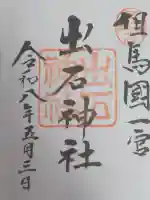 但馬國一宮
出石神社
令和八年五月三日